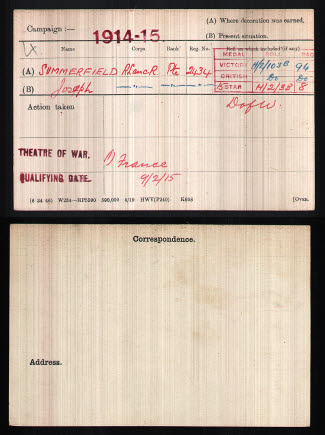 (A) Where decoration was earned.
Campaign:— 1914-15
(B) Present situation.
Name Corps Rank Reg. No. Roll on which included (if any)
MEDAL ROLL PAGE
(A) SUMMERFIELD R. Lanc. R. Pte 2434 VICTORY H/2/103B 94
(B) Joseph —"— —"— BRITISH Do Do
15 STAR H/2/3B 8
Action taken D of W.
THEATRE OF WAR. (1) France
QUALIFYING DATE. 9/2/15
(6 34 46) W234—RP5590 500,000 4/19 HWV(P240) K608 [Over.
Correspondence.
Address.